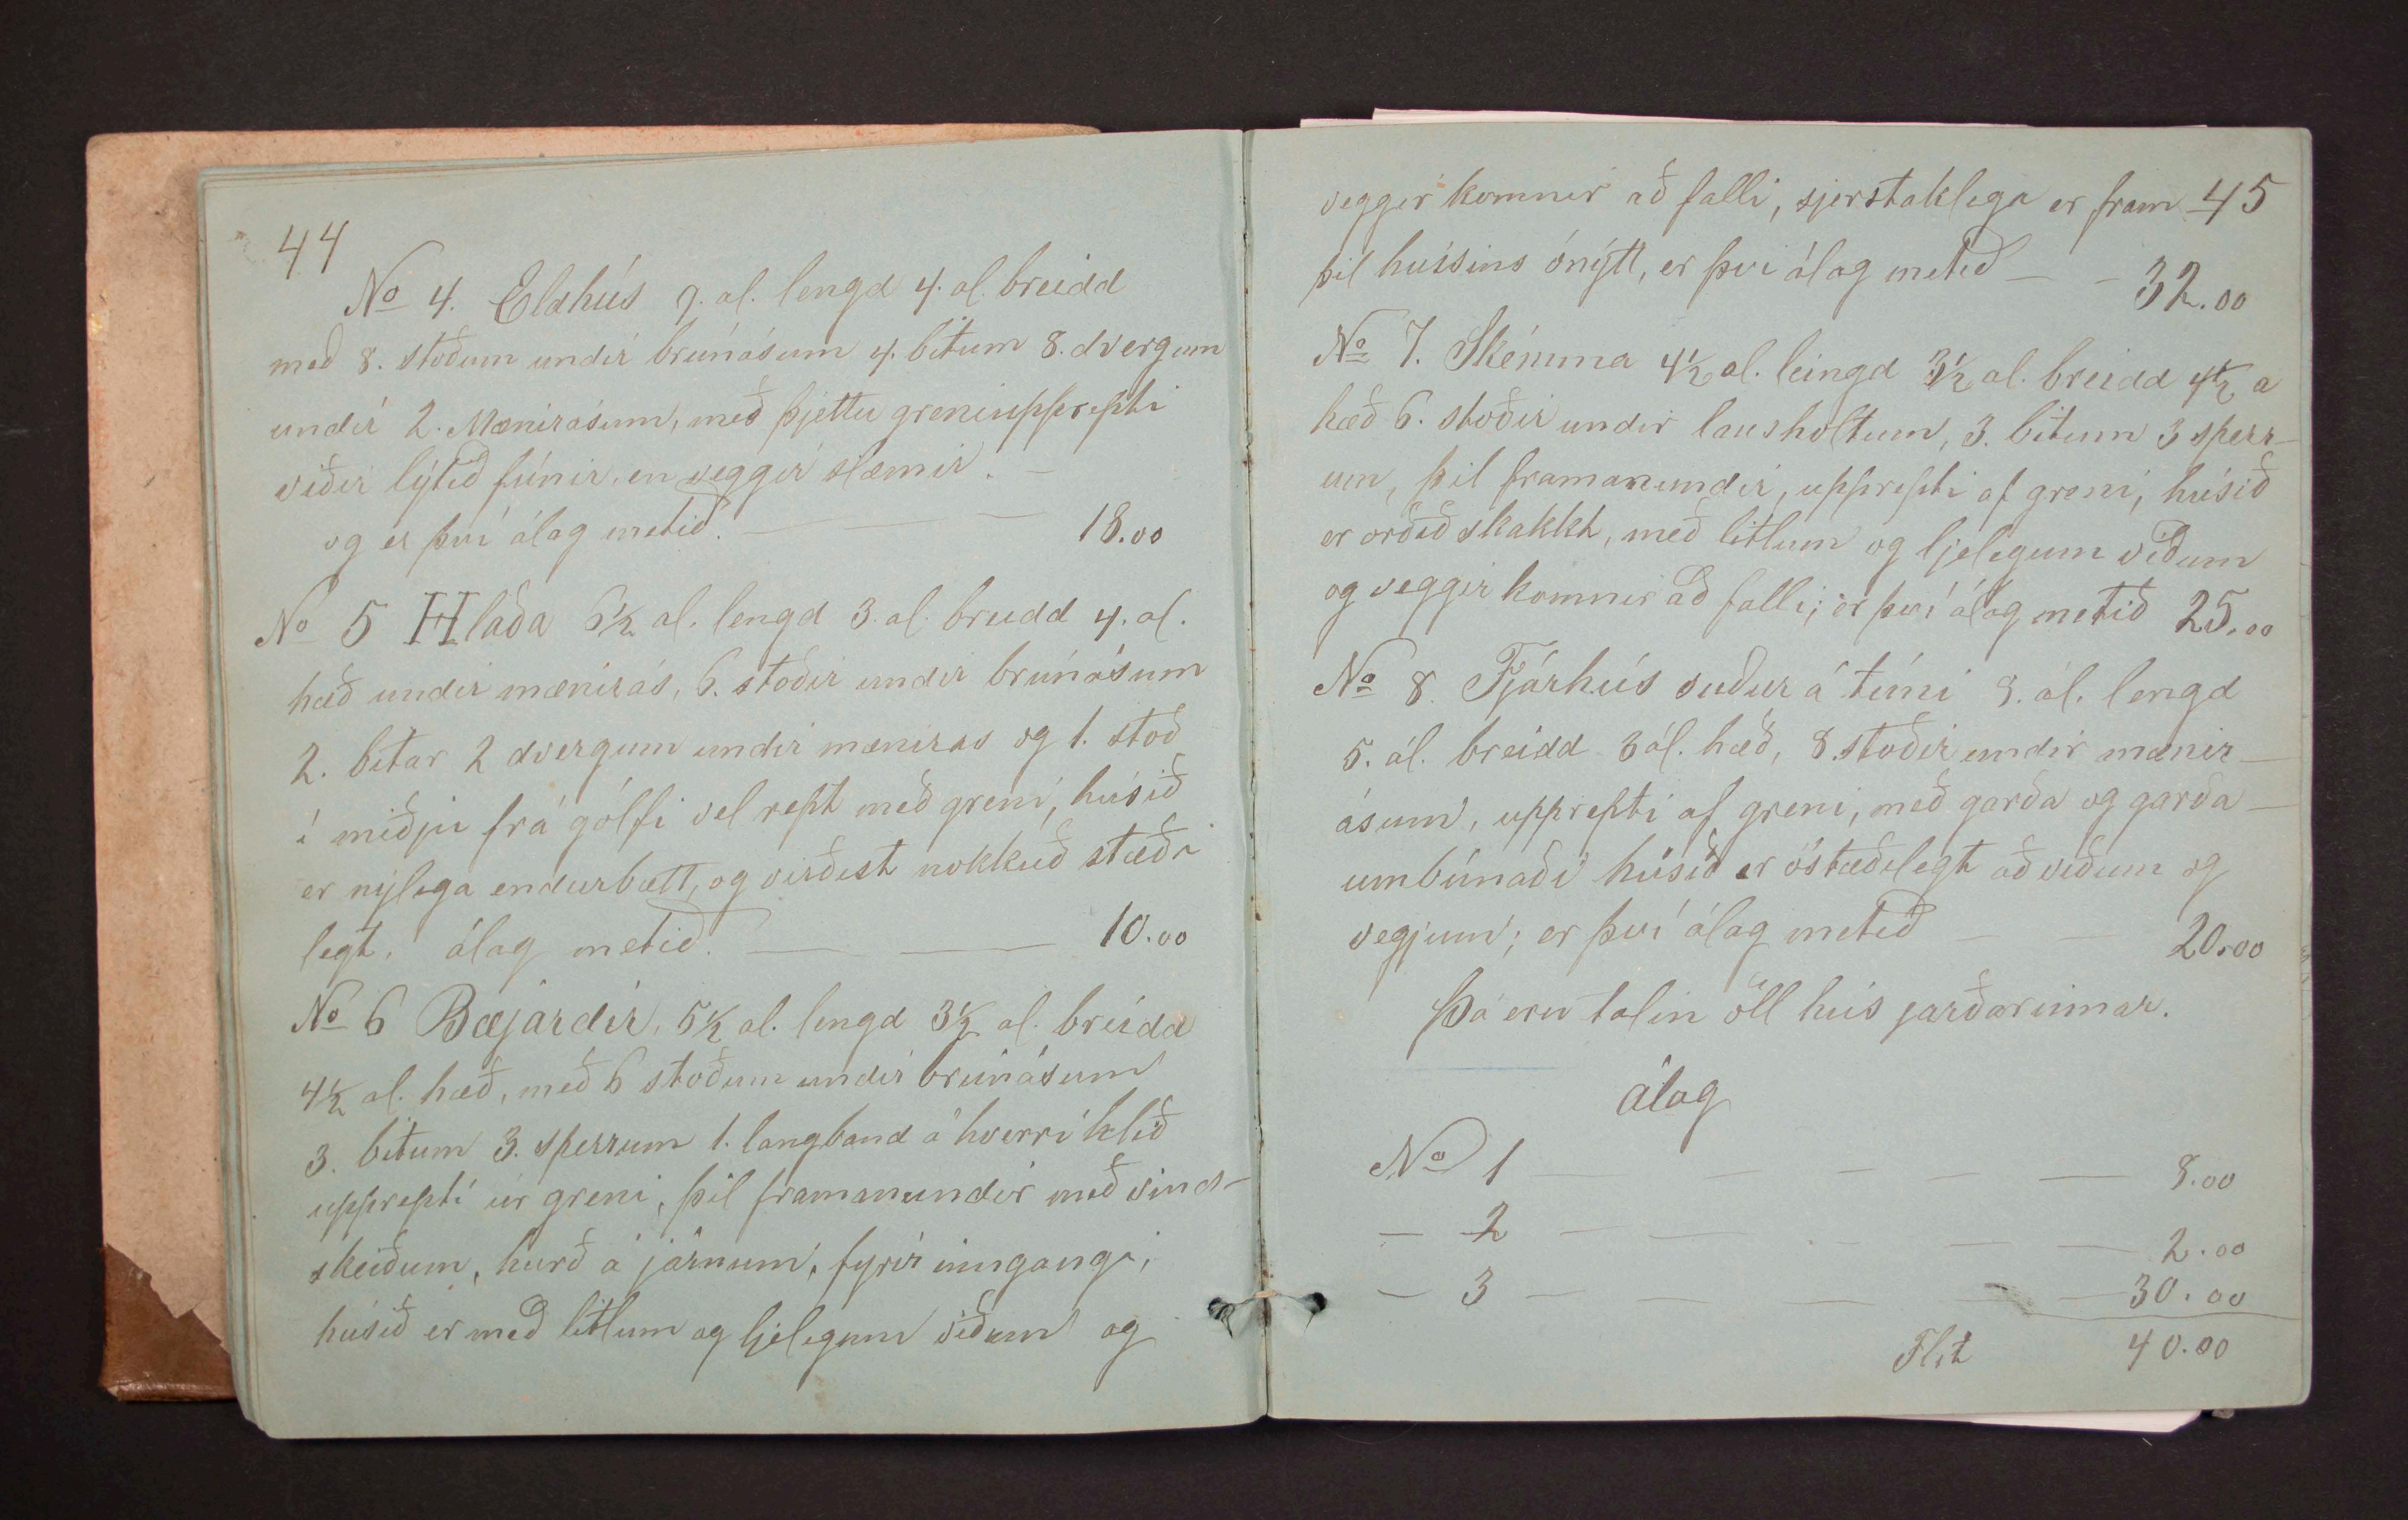 44
No 4. Eldhús 7. al. lengd 4. al. breidd
með 8. stoðum undir brúnásum 4. bitum 8. dvergum
undir 2. Mænirásum, með þjettu greniupprepti
viðir lýtið fúnir, en veggir slæmir. —
og er því álag metið. — — — 18.00
No 5 Hlaða 6½ al. lengd 3. al. breidd 4. al.
hæð undir mænirás, 6. stoðir undir brúnásum
2. bitar 2 dvergum undir mæniras og 1. stoð
í miðju frá gólfi vel rept með greni, húsið
er nýlega endurbætt, og virðist nokkuð stæði
legt. álag metið. — — 10.00
No 6 Bæjardir, 5½ al. lengd 3½ al. breidd
4½ al. hæð, með 6 stoðum undir brúnásum
3. bitum 3. sperrum 1. langband á hverri hlið
upprepti úr greni, þil framanundir með vind-
skeiðum, hurð á járnum, fyrir inngangi,
húsið er með litlum og ljelegum viðum og
45
veggir komnir að falli, sjerstaklega er fram
þil hússins ónýtt, er því álag metið — - 32.00
No 7. Skémma 4½ al. leingd 3½ al. breidd 4½ a
hæð 6. stoðir undir lausholtum, 3. bitum 3 sperr-
um, þil framanundir, upprepti af greni, húsið
er orðið skakkt, með litlum og ljelegum viðum
og veggir komnir að falli; er því álag metið 25.00
No 8. Fjárhús suður á túni 8. ál. lengd
5. ál. breidd 3 ál. hæð, 8. stoðir undir mænir-
ásum, upprepti af greni, með garða og garða-
umbúnaði húsið er óstæðilegt að viðum og
vegjum; er því álag metið — — 20.00
Þá eru talin öll hús jarðarinnar.
Álag
No 1 — — — — — 8.00
— 2 — — - — — 2.00
— 3 — — — — 30.00
Flit 40.00